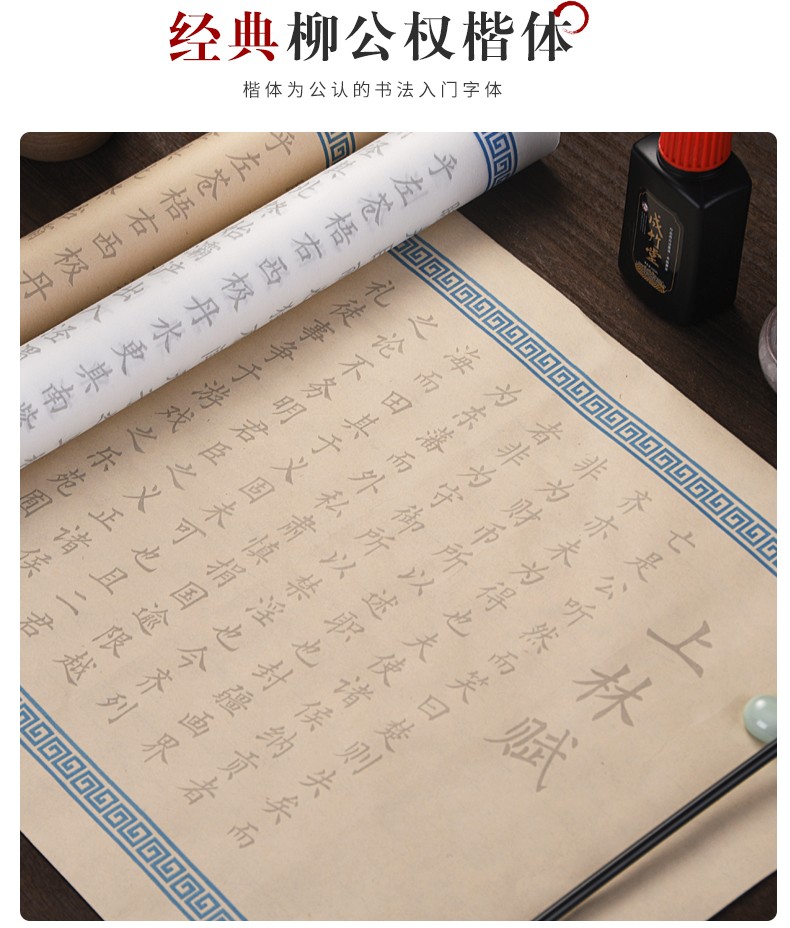 经典柳公权楷体
楷体为公认的书法入门字体
上林赋
亡是公听然而笑曰楚则失矣而
齐亦未为得也夫使诸侯纳贡者
非为财币所以述职也封疆画界
者非为守御所以禁淫也今齐列
为东藩而外私肃慎捐国逾限越
海而田其于义固未可也且二君
之论不务明君臣之义正诸侯
礼徒事争于游戏之乐苑囿
乎左苍梧右西极丹水更其南紫
乎左苍梧右西极丹
成竹堂